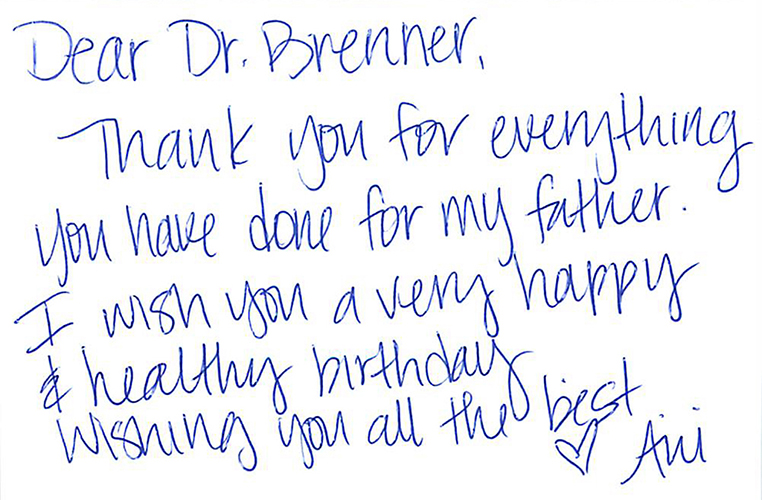 Dear Dr. Brenner,
Thank you for everything
you have done for my father.
I wish you a very happy
& healthy birthday
Wishing you all the best
♡ Ani